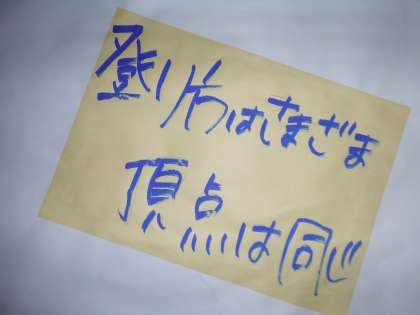 登り方はさまざま
頂点は同じ